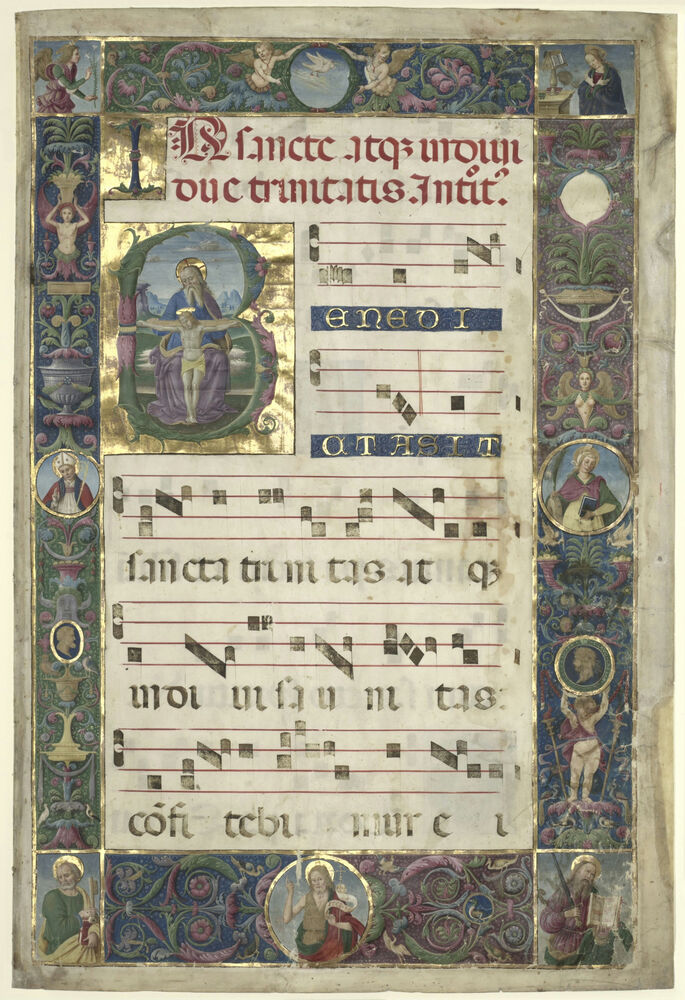 IN sancte atqꝫ indiui
due trinitatis. Introit᷒.
BENEDI
CTA SIT
sancta trinitas atqꝫ
indiuisa uni tas:
cōfitebimur ei